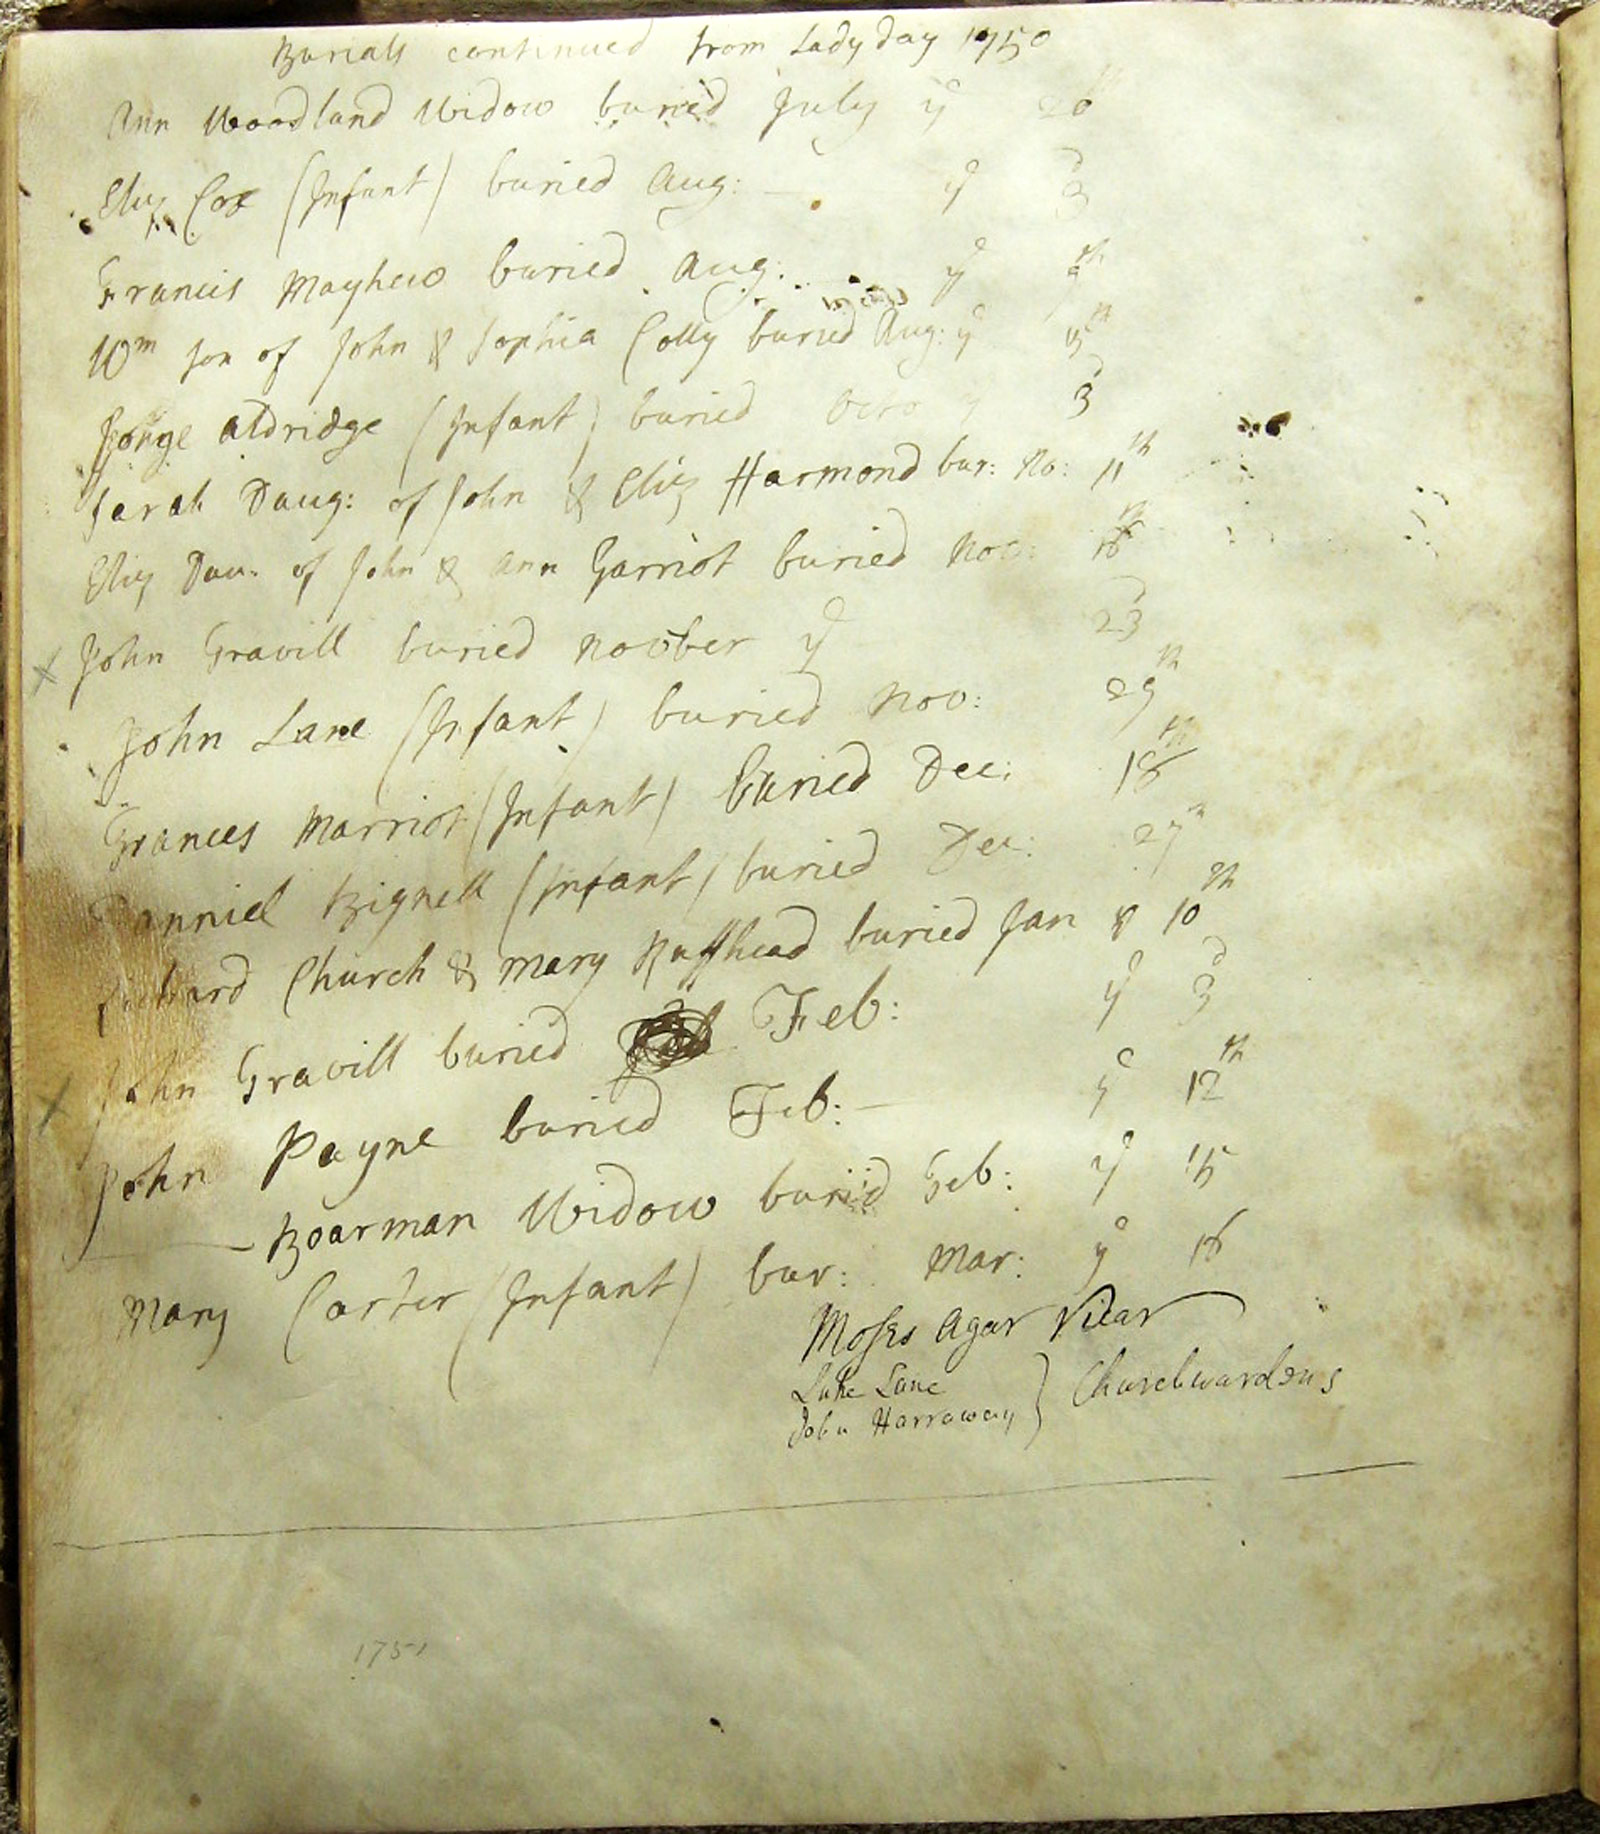 Burials continued from Lady day 1750
Ann Woodland Widow buried July ye 26
Eliz Cox (Infant) buried Aug: — ye 3d
Francis Mayhew buried Aug: ye 9th
Wm son of John & Sophia Colly buried Aug: ye 15th
Aldridge (Infant) buried Octo ye 3d
Sarah Daug: of John & Eliz Harmond bur: No: 11th
Eliz Dau: of John & Ann Garriot buried Nov: 18th
x John Gravill buried Novber ye 23d
John Lane (Infant) buried Nov: 29th
Frances Marriot (Infant) buried Dec: 18th
Danniel Bignell (Infant) buried Dec: 27th
Richard Church & Mary Ruffhead buried Jan ye 10th
x John Gravill buried Feb: ye 3d
John Payne buried Feb: — ye 12th
— Boarman Widow buried Feb: ye 15
Mary Carter (Infant) bur: Mar: ye 16
Moses Agar Vicar
Luke Lane
John Harraway } Churchwardens
1751